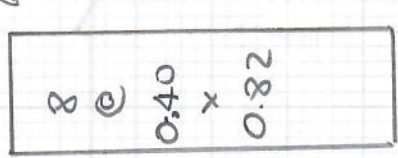 8 @ 0.40 x 0.82